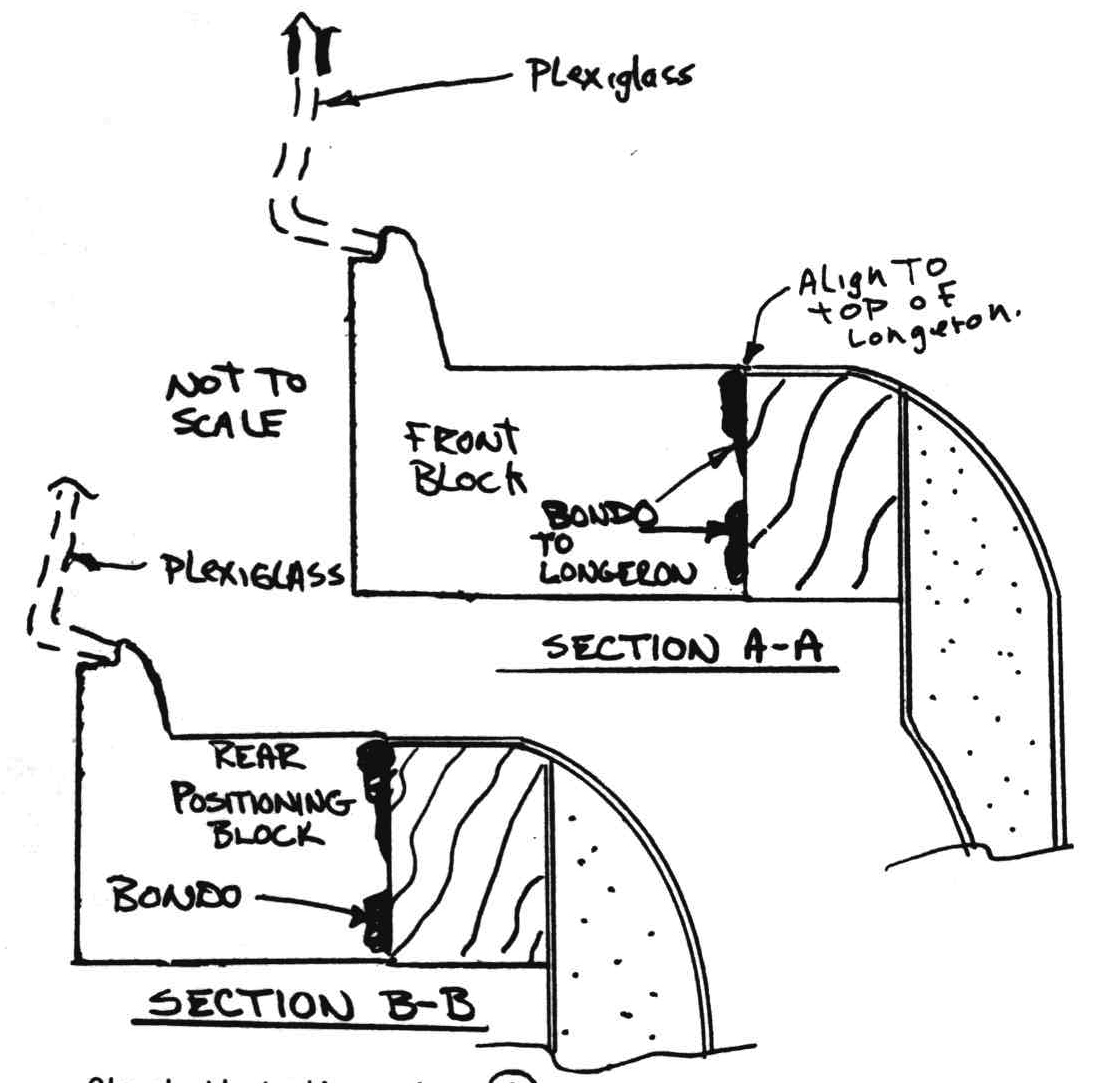 PLexiglass
ALign To
top of
Longeron.
NOT TO
SCALE
FRONT
BLOCK
BONDO
TO
LONGERON
PLexiGLASS
SECTION A-A
REAR
POSITIONING
BLOCK
BONDO
SECTION B-B